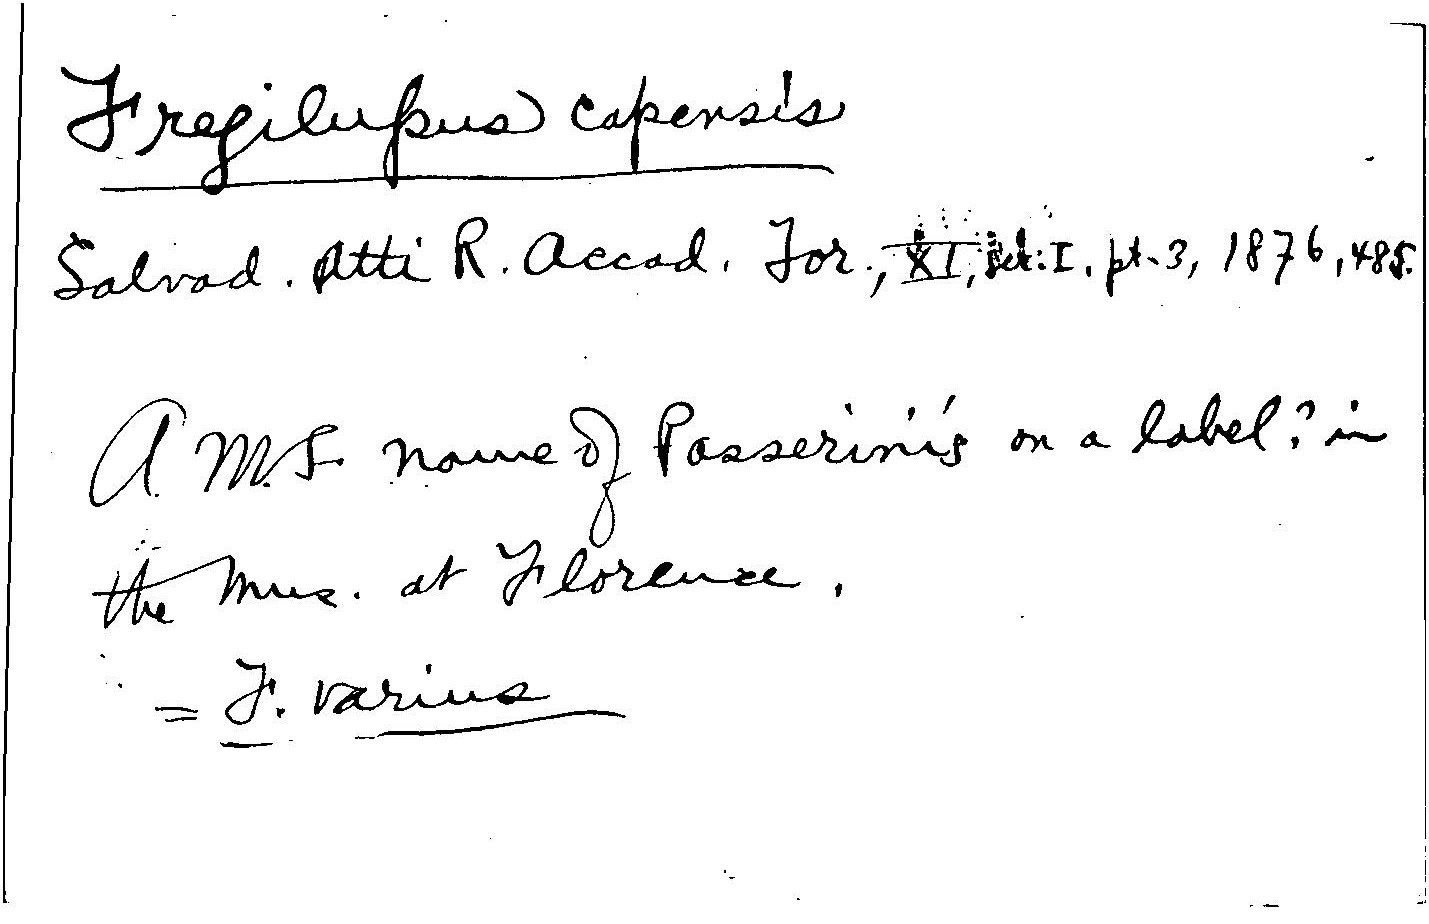 Fregilupus capensis
Salvad. Atti R. Accad. Tor., XI, pt. 3, 1876, 485.
A M.S. name of Passerini's on a label? in
the Mus. at Florence.
= F. varius